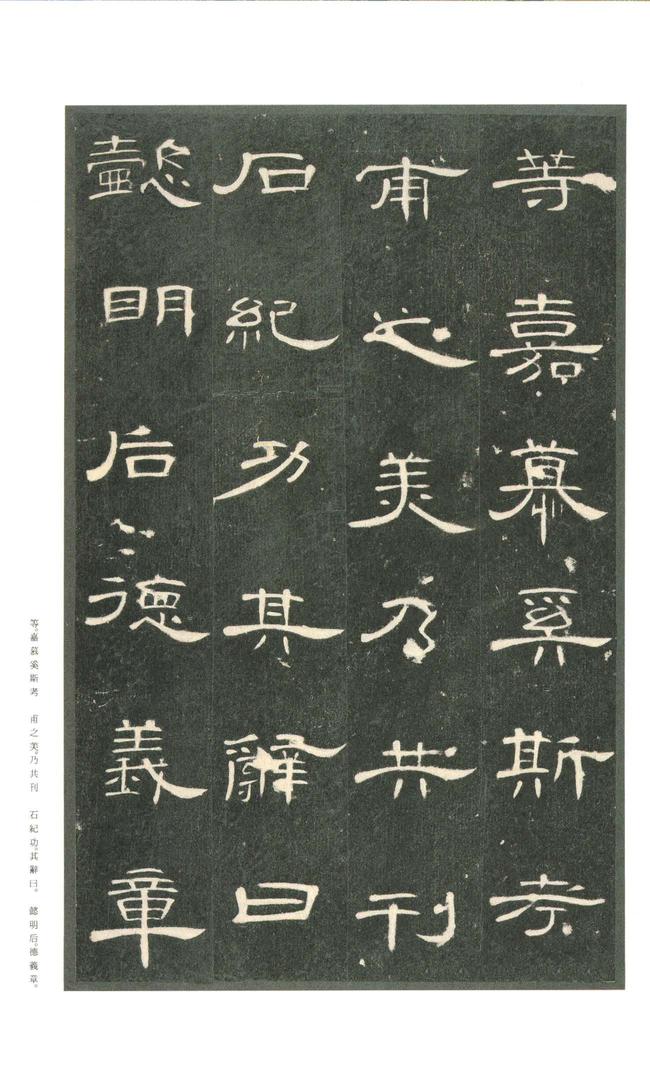 等嘉慕奚斯考
甫之美乃共刊
石紀功其辭曰
懿明后德義章
等。嘉慕奚斯考　甫之美。乃共刊　石紀功。其辭曰。　懿明后。德義章。